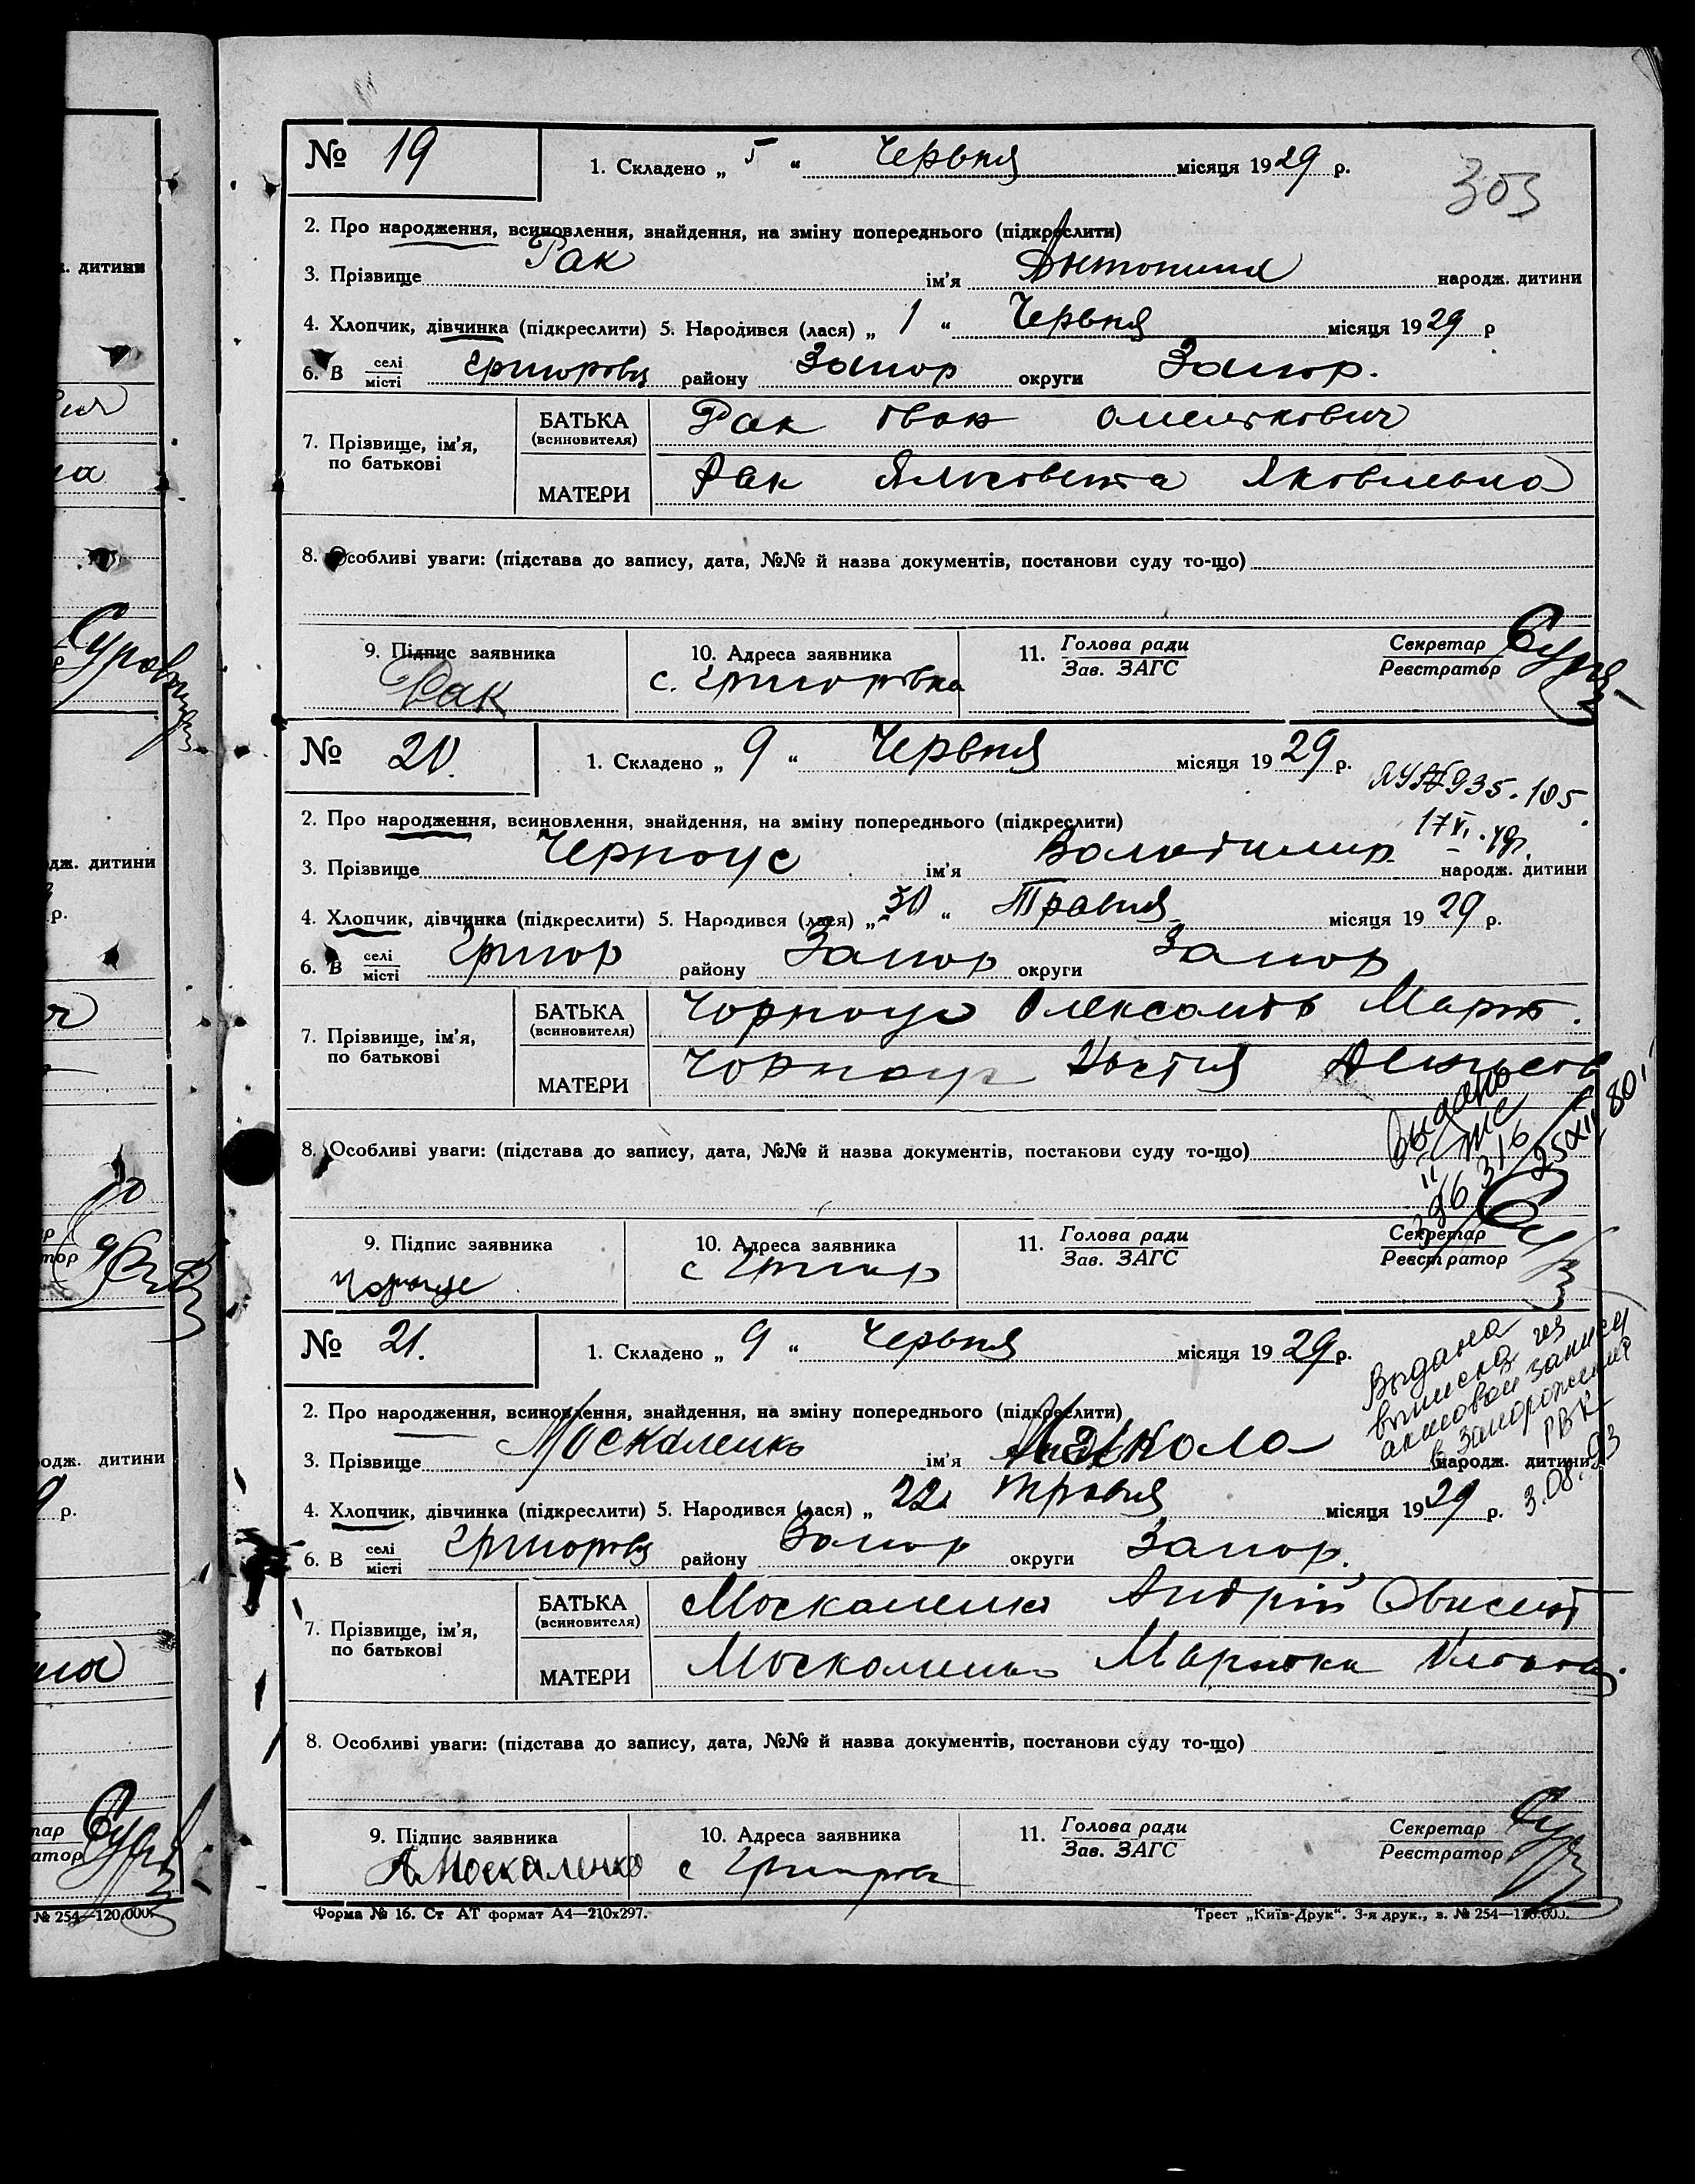 303
№ 19
1. Складено „ 5 “ Червня місяця 1929 р.
2. Про народження, всиновлення, знайдення, на зміну попереднього (підкреслити)
3. Прізвище Рак ім'я Антонина народж. дитини
4. Хлопчик, дівчинка (підкреслити) 5. Народився (лася) „ 1 “ Червня місяця 1929 р
6. В селі/місті району Запор округи Запор.
7. Прізвище, ім'я, по батькові
БАТЬКА (всиновителя) Рак Іван Омелькович
МАТЕРИ Рак Яковльвна
8. Особливі уваги: (підстава до запису, дата, №№ й назва документів, постанови суду то-що)
9. Підпис заявника 10. Адреса заявника 11. Голова ради/Зав. ЗАГС Секретар/Реєстратор
Рак с. Григоровка
№ 20.
1. Складено „ 9 “ Червня місяця 1929 р.
2. Про народження, всиновлення, знайдення, на зміну попереднього (підкреслити)
3. Прізвище Черноус ім'я Володимир народж. дитини
4. Хлопчик, дівчинка (підкреслити) 5. Народився (лася) „ 30 “ Травня місяця 1929 р.
6. В селі/місті Григор району Запор округи Запор
7. Прізвище, ім'я, по батькові
БАТЬКА (всиновителя) Чорноус Март.
МАТЕРИ Чорноус
8. Особливі уваги: (підстава до запису, дата, №№ й назва документів, постанови суду то-що)
Выдано
9. Підпис заявника 10. Адреса заявника 11. Голова ради/Зав. ЗАГС Секретар/Реєстратор
с Григор
№ 21.
1. Складено „ 9 “ Червня місяця 1929 р.
Выдана
выписка из
актовой записи
в Запорожский
РВК
3.08.93
2. Про народження, всиновлення, знайдення, на зміну попереднього (підкреслити)
3. Прізвище Москаленко ім'я Микола народж. дитини
4. Хлопчик, дівчинка (підкреслити) 5. Народився (лася) „ 22 Травня місяця 1929 р.
6. В селі/місті району Запор округи Запор.
7. Прізвище, ім'я, по батькові
БАТЬКА (всиновителя) Москаленко Андрій
МАТЕРИ Москаленко
8. Особливі уваги: (підстава до запису, дата, №№ й назва документів, постанови суду то-що)
9. Підпис заявника 10. Адреса заявника 11. Голова ради/Зав. ЗАГС Секретар/Реєстратор
А. Москаленко с
Форма № 16. Ст АТ формат А4—210х297.
Трест „Київ-Друк“. 3-я друк., з. № 254—120.000.